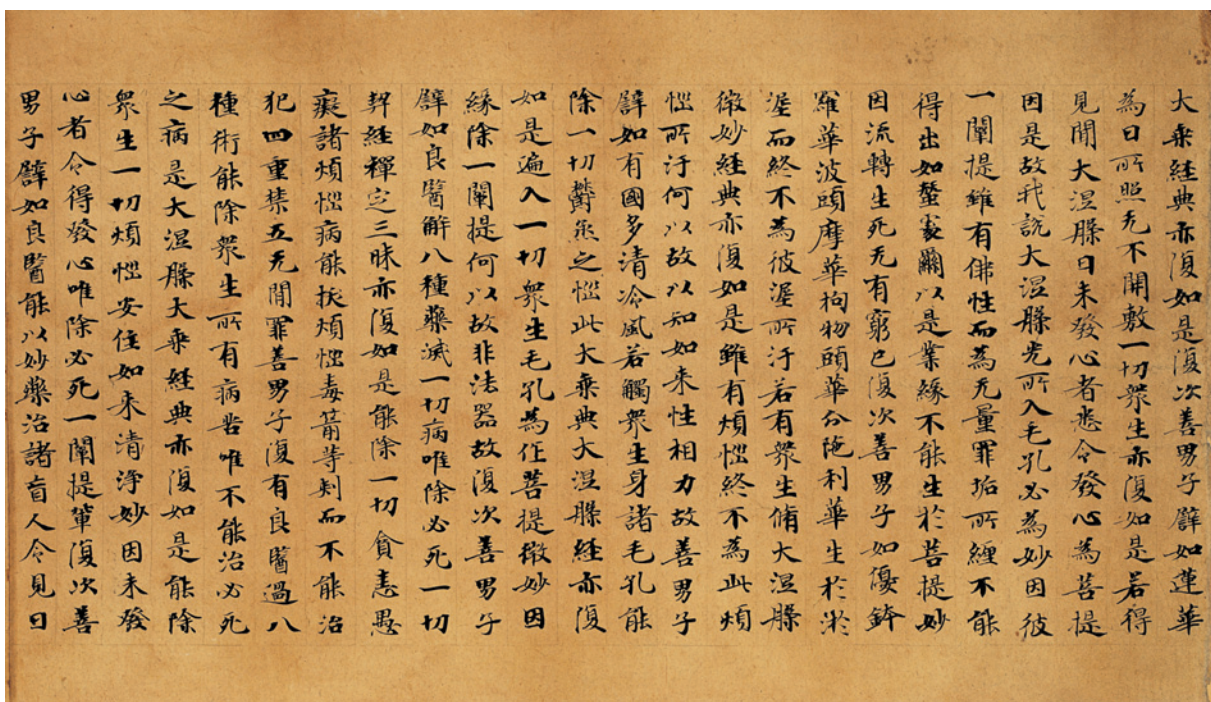 大乘經典亦復如是復次善男子譬如蓮華
為日所照无不開敷一切衆生亦復如是若得
見聞大涅膝日未發心者悉令發心為菩提
因是故我說大涅膝光所入毛孔必為妙因彼
一闡提雖有佛性而為无量罪垢所纏不能
得出如蠶處繭以是業緣不能生於菩提妙
因流轉生死无有窮已復次善男子如優鉢
羅華波頭摩華拘物頭華分陁利華生於淤
渥而終不為彼渥所汙若有衆生脩大涅膝
微妙經典亦復如是雖有煩惱終不為此煩
惱所汙何以故以知如来性相力故善男子
譬如有國多清冷風若觸衆生身諸毛孔能
除一切欝烝之惱此大乘典大涅膝經亦復
如是遍入一切衆生毛孔為任菩提微妙因
緣除一闡提何以故非法器故復次善男子
譬如良醫解八種藥滅一切病唯除必死一切
契經禪定三昧亦復如是能除一切貪恚愚
癡諸煩惱病能拔煩惱毒箭等刾而不能治
犯四重禁五无間罪善男子復有良醫過八
種術能除衆生所有病苦唯不能治必死
之病是大涅膝大乘經典亦復如是能除
衆生一切煩惱安住如来清淨妙因未發
心者令得發心唯除必死一闡提輩復次善
男子譬如良醫能以妙藥治諸盲人令見日